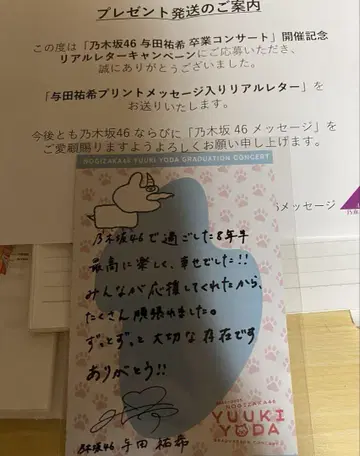 プレゼント発送のご案内
この度は「乃木坂46 与田祐希 卒業コンサート」開催記念
リアルレターキャンペーンにご応募いただき、
誠にありがとうございました。
「与田祐希プリントメッセージ入りリアルレター」を
お送りいたします。
今後とも乃木坂46 ならびに「乃木坂 46 メッセージ」を
ご愛顧賜りますようよろしくお願い申し上げます。
メッセージ
NOGIZAKA46 YUUKI YODA GRADUATION CONCERT
乃木坂46で過ごした8年半
最高に楽しく、幸せでした!!
みんなが応援してくれたから、
たくさん頑張れました。
ずっとずっと大切な存在です
ありがとう!!
NOGIZAKA46
YUUKI
YODA
GRADUATION CONCERT
乃木坂46 与田祐希